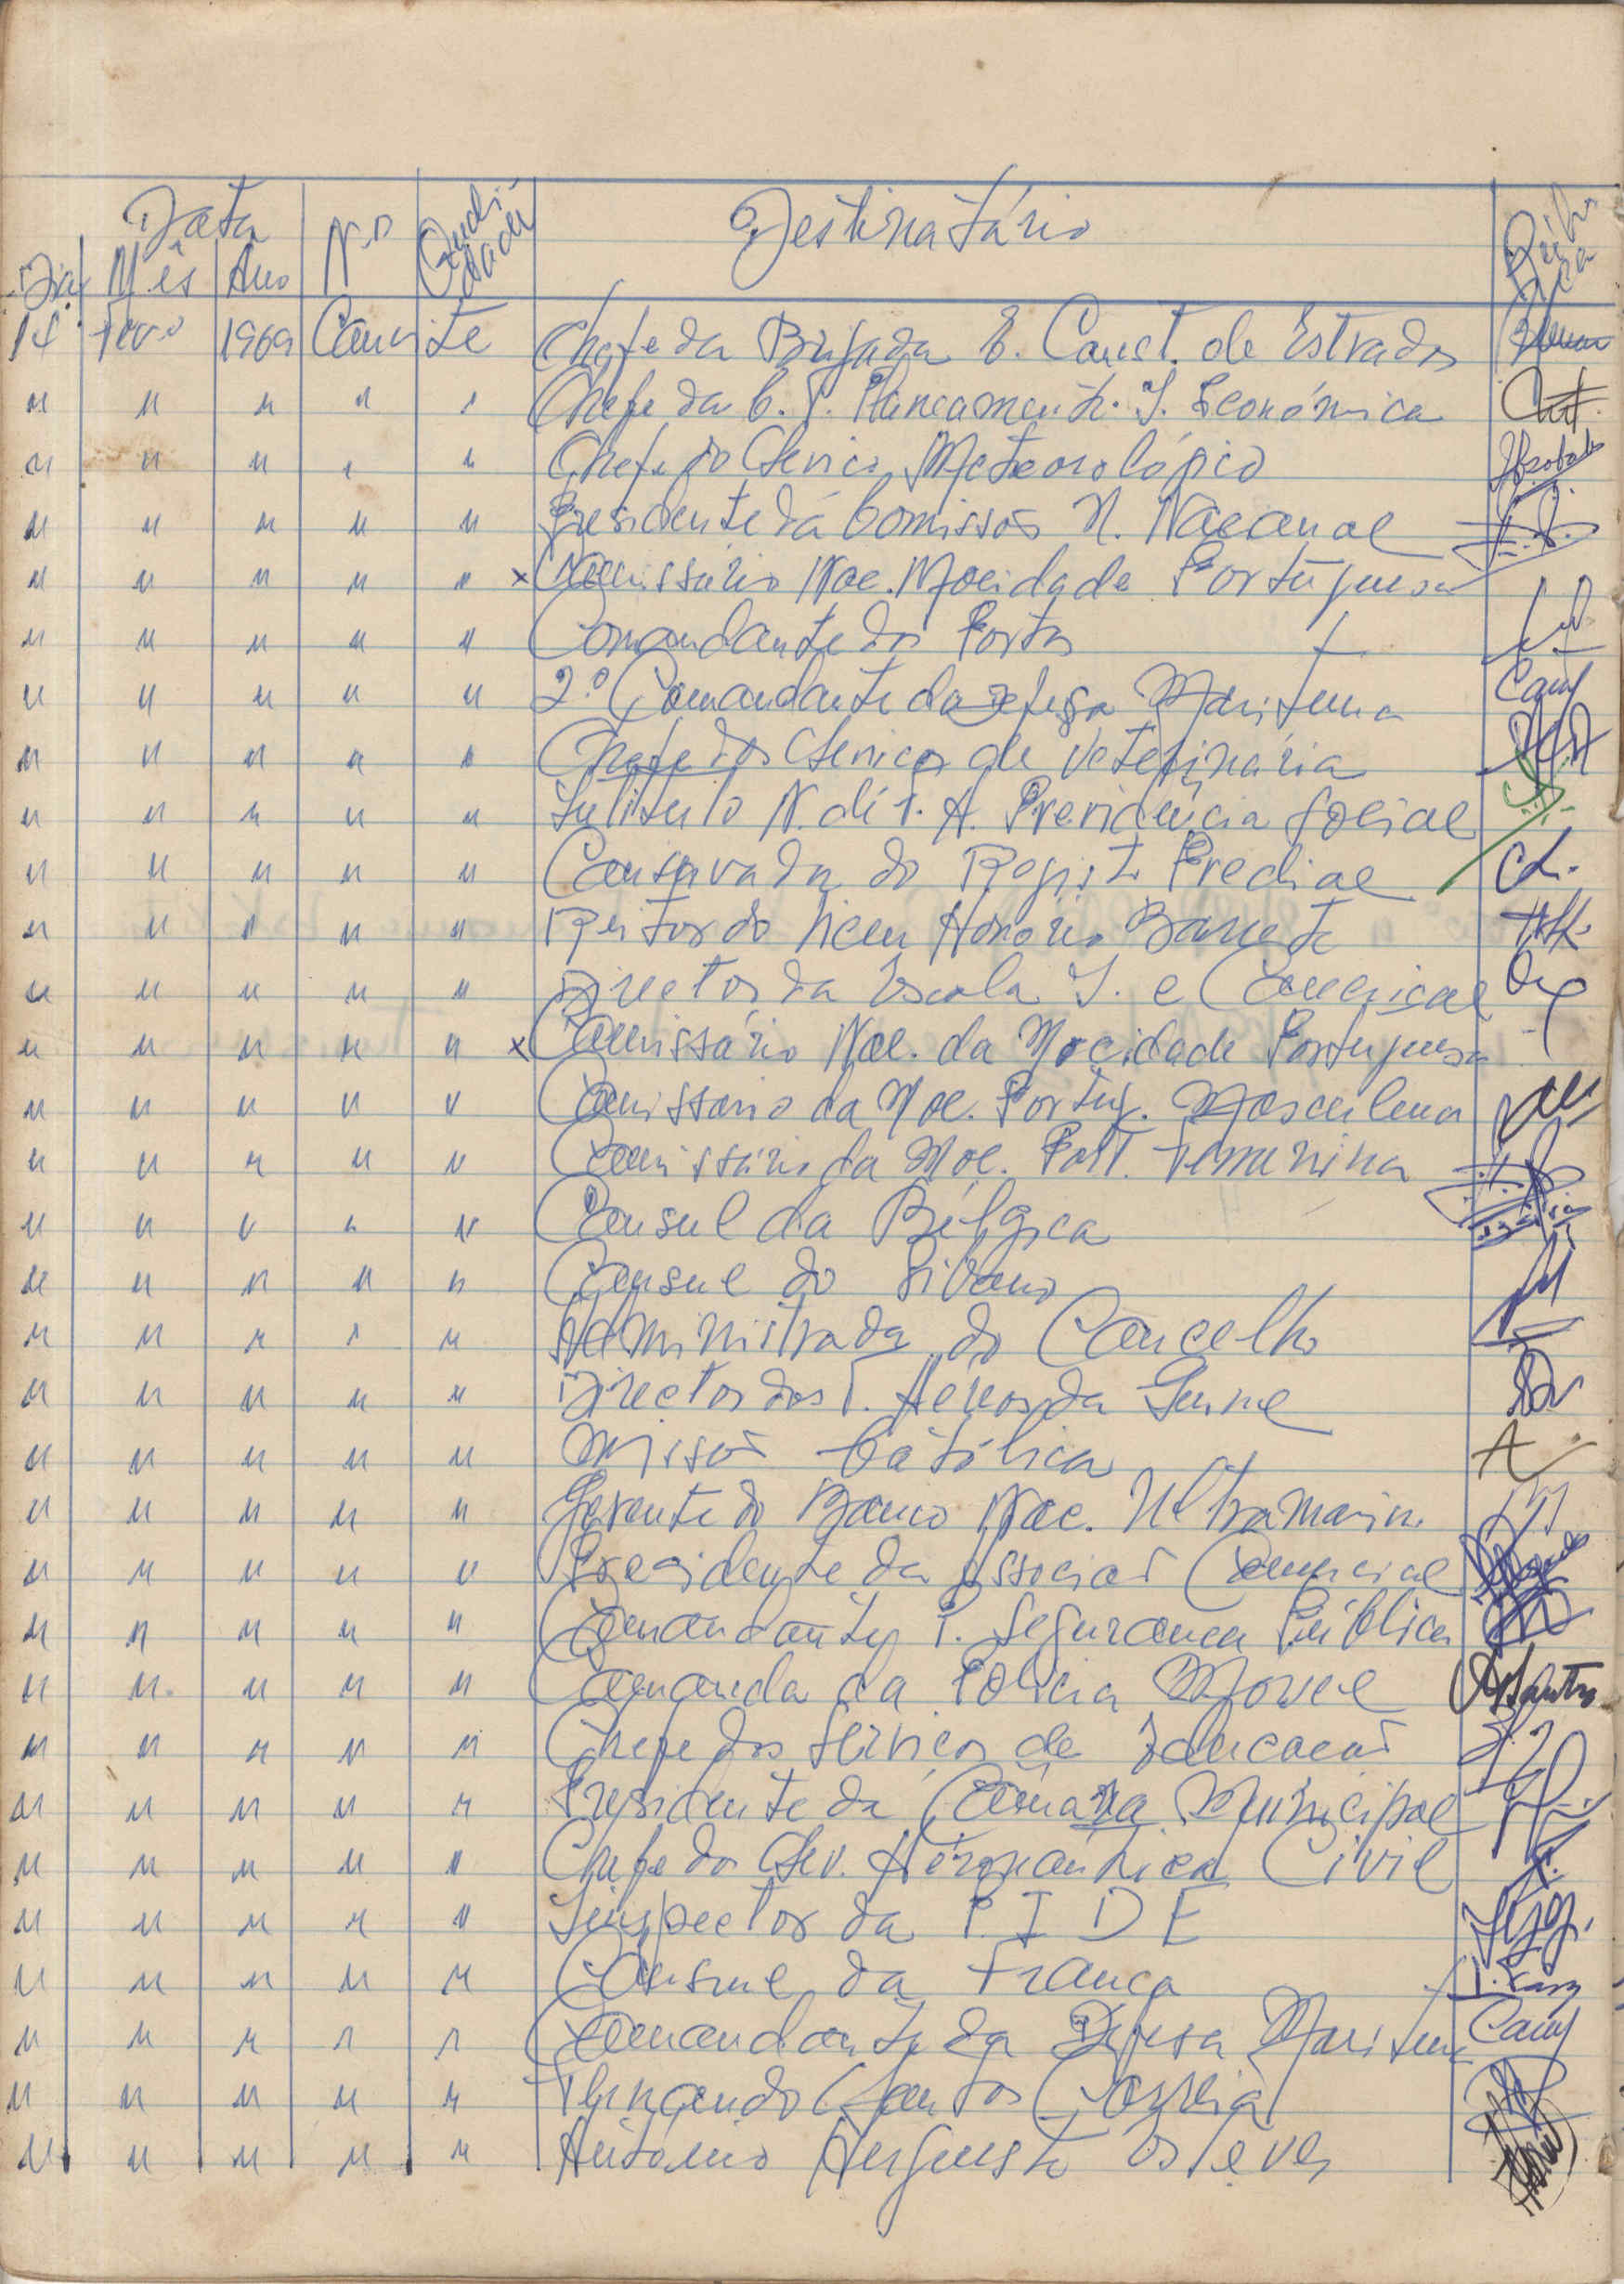 Data Nº Quali dade Destinatário Rúbrica
Dia Mês Ano
14 Fevº 1969 Convite Chefe da Brigada E. Const. de Estradas
" " " " " Chefe da C. P. Planeamento I. Económica
" " " " " Chefe do Servico Meteorológico
" " " " " Presidente da Comissão N. Nacional
" " " " " x Comissário Nac. Mocidade Portuguesa
" " " " " Comandante dos Portos
" " " " " 2.º Comandante da Defesa Maritima
" " " " " Chefe dos Servicos de Veterinária
" " " " " Instituto N. de T. A. Previdência Social
" " " " " Conservador do Registo Predial Cd.
" " " " " Reitor do Liceu Honório Barreto
" " " " " Director da Escola I. e Comercial
" " " " " x Comissário Nac. da Mocidade Portuguesa
" " " " " Comissário da Moc. Portug. Masculina
" " " " " Comissário da Moc. Port. Feminina
" " " " " Consul da Bélgica
" " " " " Consul do Libano
" " " " " Administrador do Concelho
" " " " " Director dos T. Aéreos da Guiné
" " " " " Missão Católica A
" " " " " Gerente do Banco Nac. Ultramarino
" " " " " Presidente da Associaō Comercial
" " " " " Comandante P. Seguranca Pública
" " " " " Comando da Policia Movel
" " " " " Chefe dos Serviços de Educacaō
" " " " " Presidente da Câmara Municipal
" " " " " Chefe do Serv. Aéronáutica Civil
" " " " " Inspector da P I D E
" " " " " Consul da Franca
" " " " " Comandante da Defesa Maritima
" " " " " Fernando Santos Correia
" " " " " António Augusto Esteves